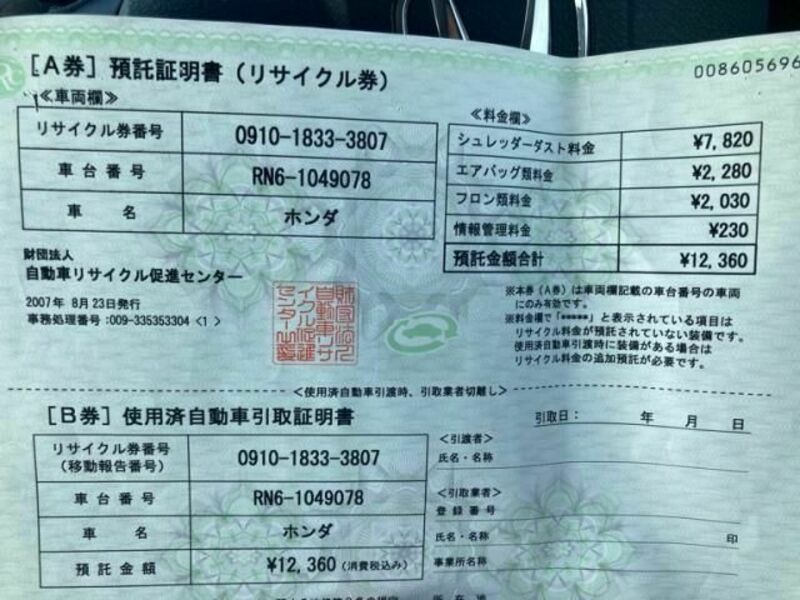 008605696
[A券] 預託証明書 (リサイクル券)
≪車両欄≫
リサイクル券番号 0910-1833-3807
車台番号 RN6-1049078
車名 ホンダ
≪料金欄≫
シュレッダーダスト料金 ¥7,820
エアバッグ類料金 ¥2,280
フロン類料金 ¥2,030
情報管理料金 ¥230
預託金額合計 ¥12,360
財団法人
自動車リサイクル促進センター
2007年 8月23日発行
事務処理番号:009-335353304 <1>
財団法人
自動車リサ
イクル促進
センター
※本券(A券)は車両欄記載の車台番号の車両
にのみ有効です。
※料金欄で「*****」と表示されている項目は
リサイクル料金が預託されていない装備です。
使用済自動車引渡時に装備がある場合は
リサイクル料金の追加預託が必要です。
<使用済自動車引渡時、引取業者切離し>
[B券] 使用済自動車引取証明書
引取日: 年 月 日
リサイクル券番号
(移動報告番号) 0910-1833-3807
車台番号 RN6-1049078
車名 ホンダ
預託金額 ¥12,360 (消費税込み)
<引渡者>
氏名・名称
<引取業者>
登録番号
氏名・名称 印
事業所名称
所在地